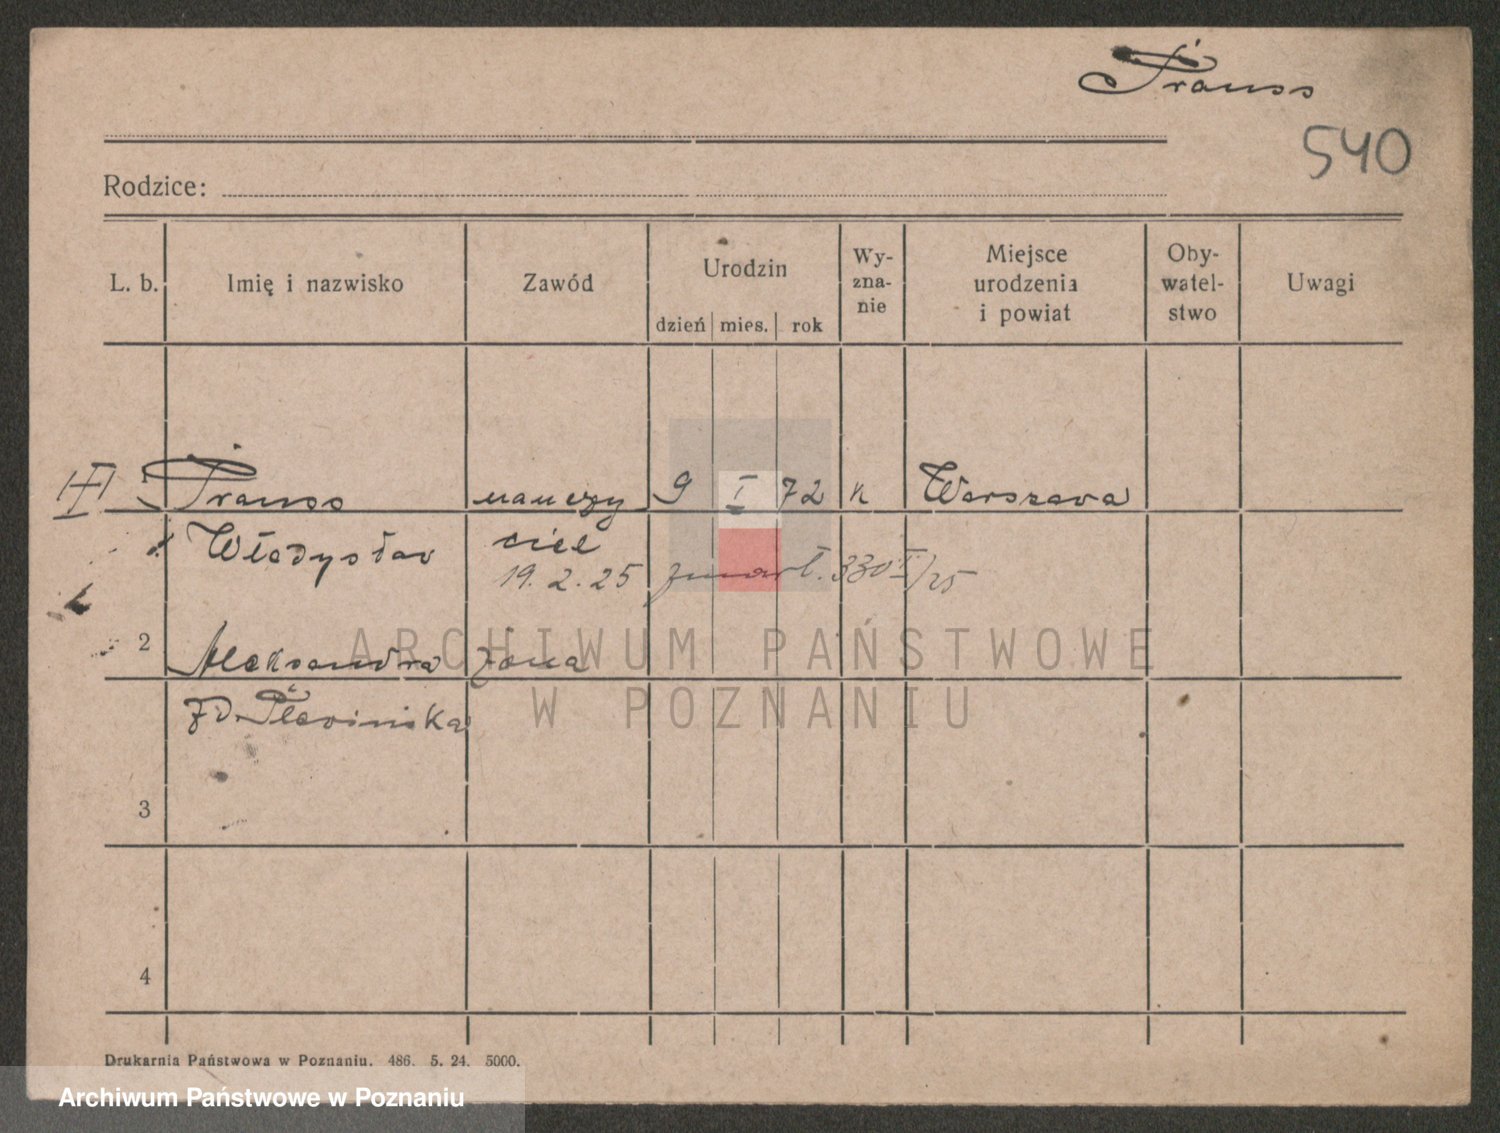 Prauss
540
Rodzice:
L. b. Imię i nazwisko Zawód Urodzin dzień mies. rok Wy-zna-nie Miejsce urodzenia i powiat Oby-watel-stwo Uwagi
1 Prauss nauczy 9 I 72 k Warszawa
Władysław ciel
19. 2. 25 zmarł. 330 I/25
2 Aleksandra żona
ARCHIWUM PAŃSTWOWE
W POZNANIU
3
4
Drukarnia Państwowa w Poznaniu. 486. 5. 24. 5000.
Archiwum Państwowe w Poznaniu